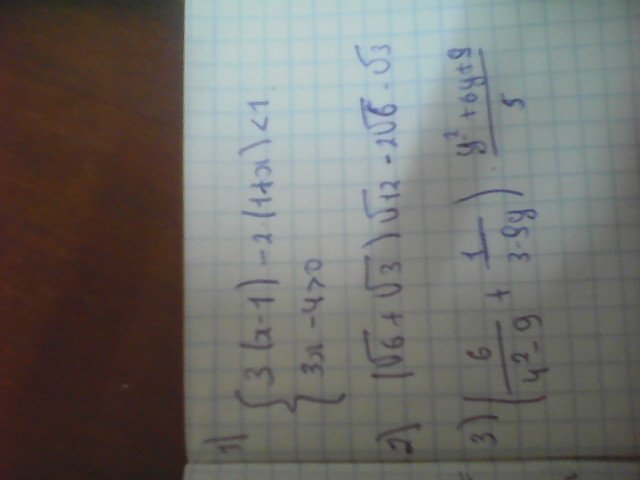 1) { 3(x-1)-2(1+x)<1
3x-4>0
2) (√6+√3)√12-2√6·√3
3) (6/(y²-9) + 1/(3-9y)) · (y²+6y+9)/5